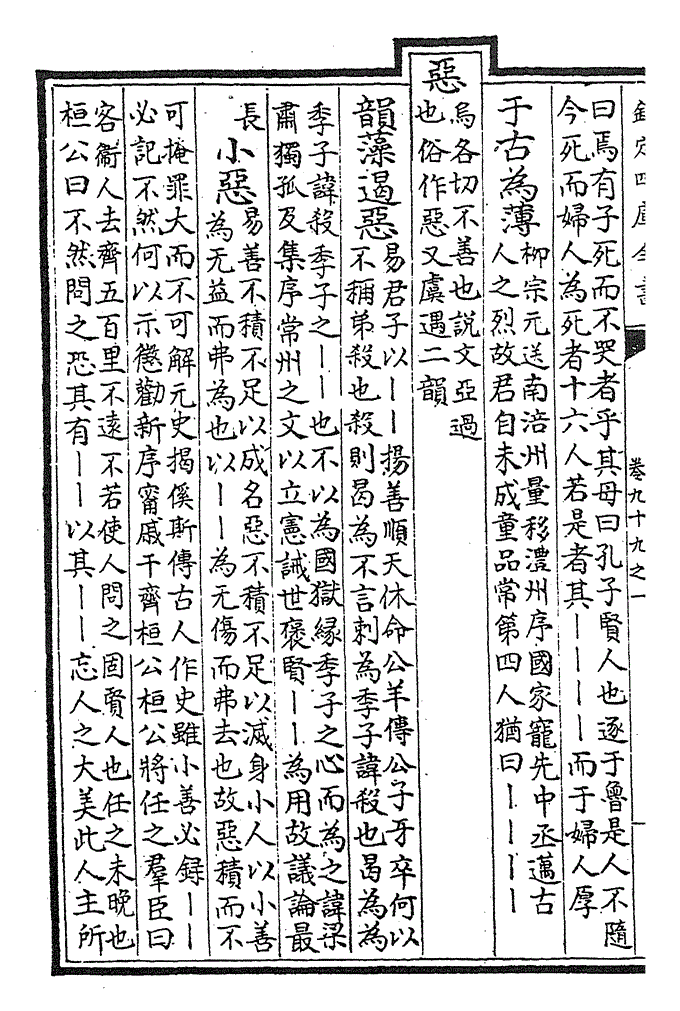 欽定四庫全書
卷九十九之一
曰焉有子死而不哭者乎其母曰孔子賢人也逐于魯是人不隨
今死而婦人為死者十六人若是者其||||而于婦人厚
于古為薄
柳宗元送南涪州量移澧州序國家寵先中丞邁古
人之烈故君自未成童品常第四人猶曰||||
惡
烏各切不善也説文亞過
也俗作惡又虞遇二韻
韻藻遏惡
易君子以||揚善順天休命公羊傳公子牙卒何以
不稱弟殺也殺則曷為不言刺為季子諱殺也曷為為
季子諱殺季子之||也不以為國獄緣季子之心而為之諱梁
肅獨孤及集序常州之文以立憲誡世褒賢||為用故議論最
長
小惡
易善不積不足以成名惡不積不足以滅身小人以小善
為无益而弗為也以||為无傷而弗去也故惡積而不
可掩罪大而不可解元史揭傒斯傳古人作史雖小善必録||
必記不然何以示懲勸新序甯戚干齊桓公桓公將任之羣臣曰
客衞人去齊五百里不遠不若使人問之固賢人也任之未晚也
桓公曰不然問之恐其有||以其||忘人之大美此人主所